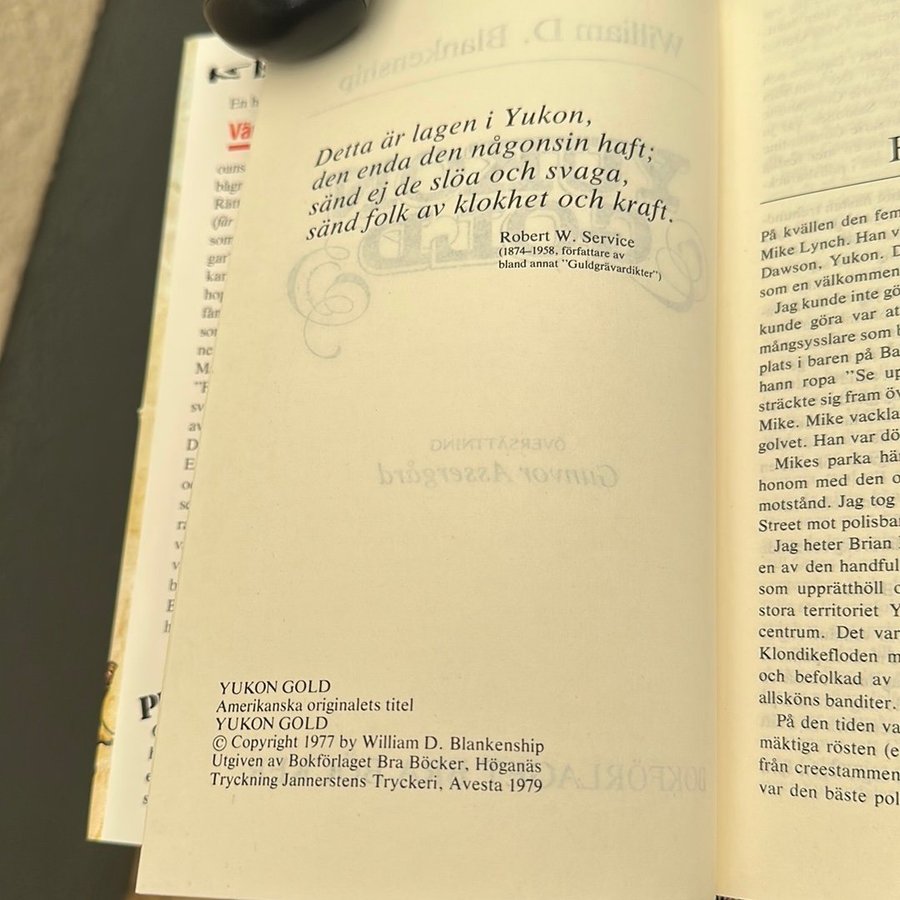 Detta är lagen i Yukon,
den enda den någonsin haft;
sänd ej de slöa och svaga,
sänd folk av klokhet och kraft.
Robert W. Service
(1874–1958, författare av
bland annat ”Guldgrävardikter”)
YUKON GOLD
Amerikanska originalets titel
YUKON GOLD
© Copyright 1977 by William D. Blankenship
Utgiven av Bokförlaget Bra Böcker, Höganäs
Tryckning Jannerstens Tryckeri, Avesta 1979
William D. Blankenship
GOLD
ÖVERSÄTTNING
Gunvor Assergård
På kvällen den fem
Mike Lynch. Han v
Dawson, Yukon. D
som en välkommen
Jag kunde inte gö
kunde göra var at
mångsysslare som
plats i baren på Ba
hann ropa ”Se up
sträckte sig fram öv
Mike. Mike vackla
golvet. Han var dö
Mikes parka hä
honom med den o
motstånd. Jag tog
Street mot polisba
Jag heter Brian
en av den handful
som upprätthöll
stora territoriet Y
centrum. Det var
Klondikefloden m
och befolkad av
allsköns banditer.
På den tiden va
mäktiga rösten (e
från creestammen
var den bäste pol